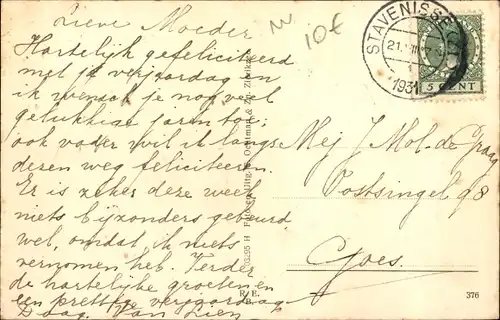 Lieve Moeder
Hartelijk gefeliciteerd
met je verjaardag en
ik wensch je nog veel
gelukkige jaren toe;
ook vader wil ik langs
dezen weg feliciteeren.
Er is zeker deze week
niets bijzonders gebeurd
wel, omdat ik niets
vernomen heb. Verder
de hartelijke groeten en
een prettige verjaardag
Daag. Van Lien
10€
STAVENISSE
1931
5 CENT
Mej J Mol-de Graag
Postsingel 98
Goes.
376